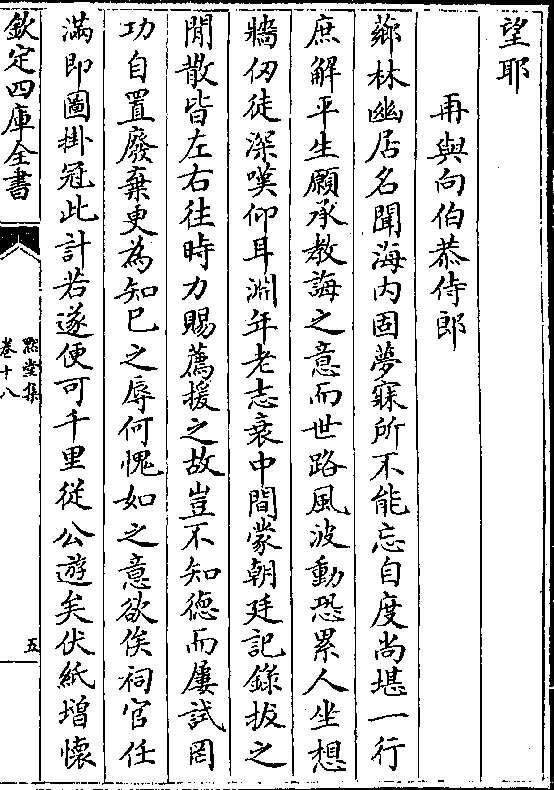 望耶
再與向伯恭侍郎
薌林幽居名聞海内固夢寐所不能忘自度尚堪一行
庶解平生願承教誨之意而世路風波動恐累人坐想
墻仞徒深嘆仰耳淵年老志衰中間蒙朝廷記錄拔之
閒散皆左右往時力賜薦援之故豈不知德而屢試罔
功自置廢棄更為知己之辱何愧如之意欲俟祠官任
滿即圖掛冠此計若遂便可千里從公遊矣伏紙增懷
欽定四庫全書
默堂集
卷十八
五